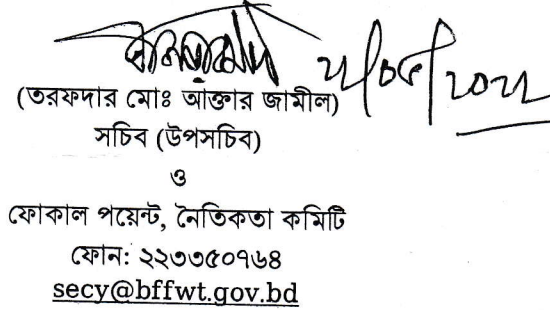 (তরফদার মোঃ আক্তার জামীল)
সচিব (উপসচিব)
ও
ফোকাল পয়েন্ট, নৈতিকতা কমিটি
ফোন: ২২৩৩৫০৭৬৪
secy@bffwt.gov.bd